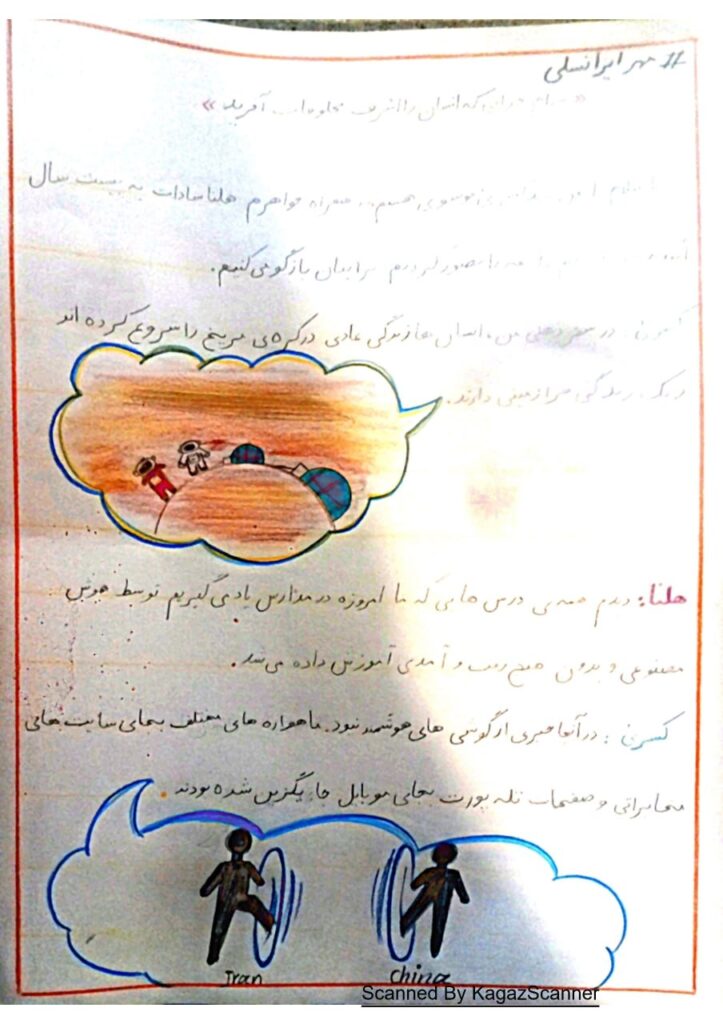 # مهر ایرانسلی
« که انسان را اشرف مخلوقات آفرید »
موسوی هستم، همراه خواهرم هلنا سادات به بیست سال
را تصور کردیم برایتان بازگو می‌کنیم.
در سفر ذهنی من، انسان ها زندگی عادی در کره‌ی مریخ را شروع کرده اند
و یک زندگی فرازمینی دارند.
هلنا: دیدم همه‌ی درس هایی که ما امروزه در مدارس یاد می گیریم توسط هوش
مصنوعی و بدون هیچ رفت و آمدی آموزش داده می شد.
کسری : در آنجا خبری از گوشی های هوشمند نبود. ماهواره های مختلف بجای سایت های
مخابراتی و صفحات تله پورت بجای موبایل جایگزین شده بودند.
Iran
China
Scanned By KagazScanner